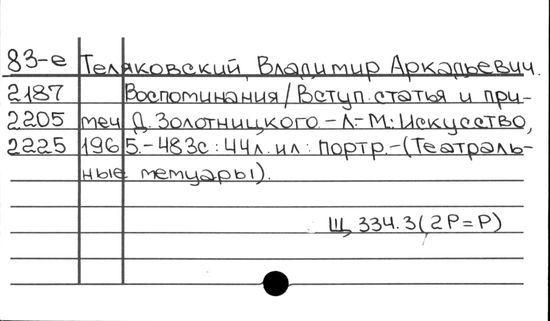 83-е Теляковский, Владимир Аркадьевич.
2187 Воспоминания/Вступ. статья и при-
2205 меч Д. Золотницкого.-Л-М.: Искусство,
2225 1965.-483с: 44л. ил: портр.-(Театраль-
ные мемуары).
Щ 334.3(2Р=Р)